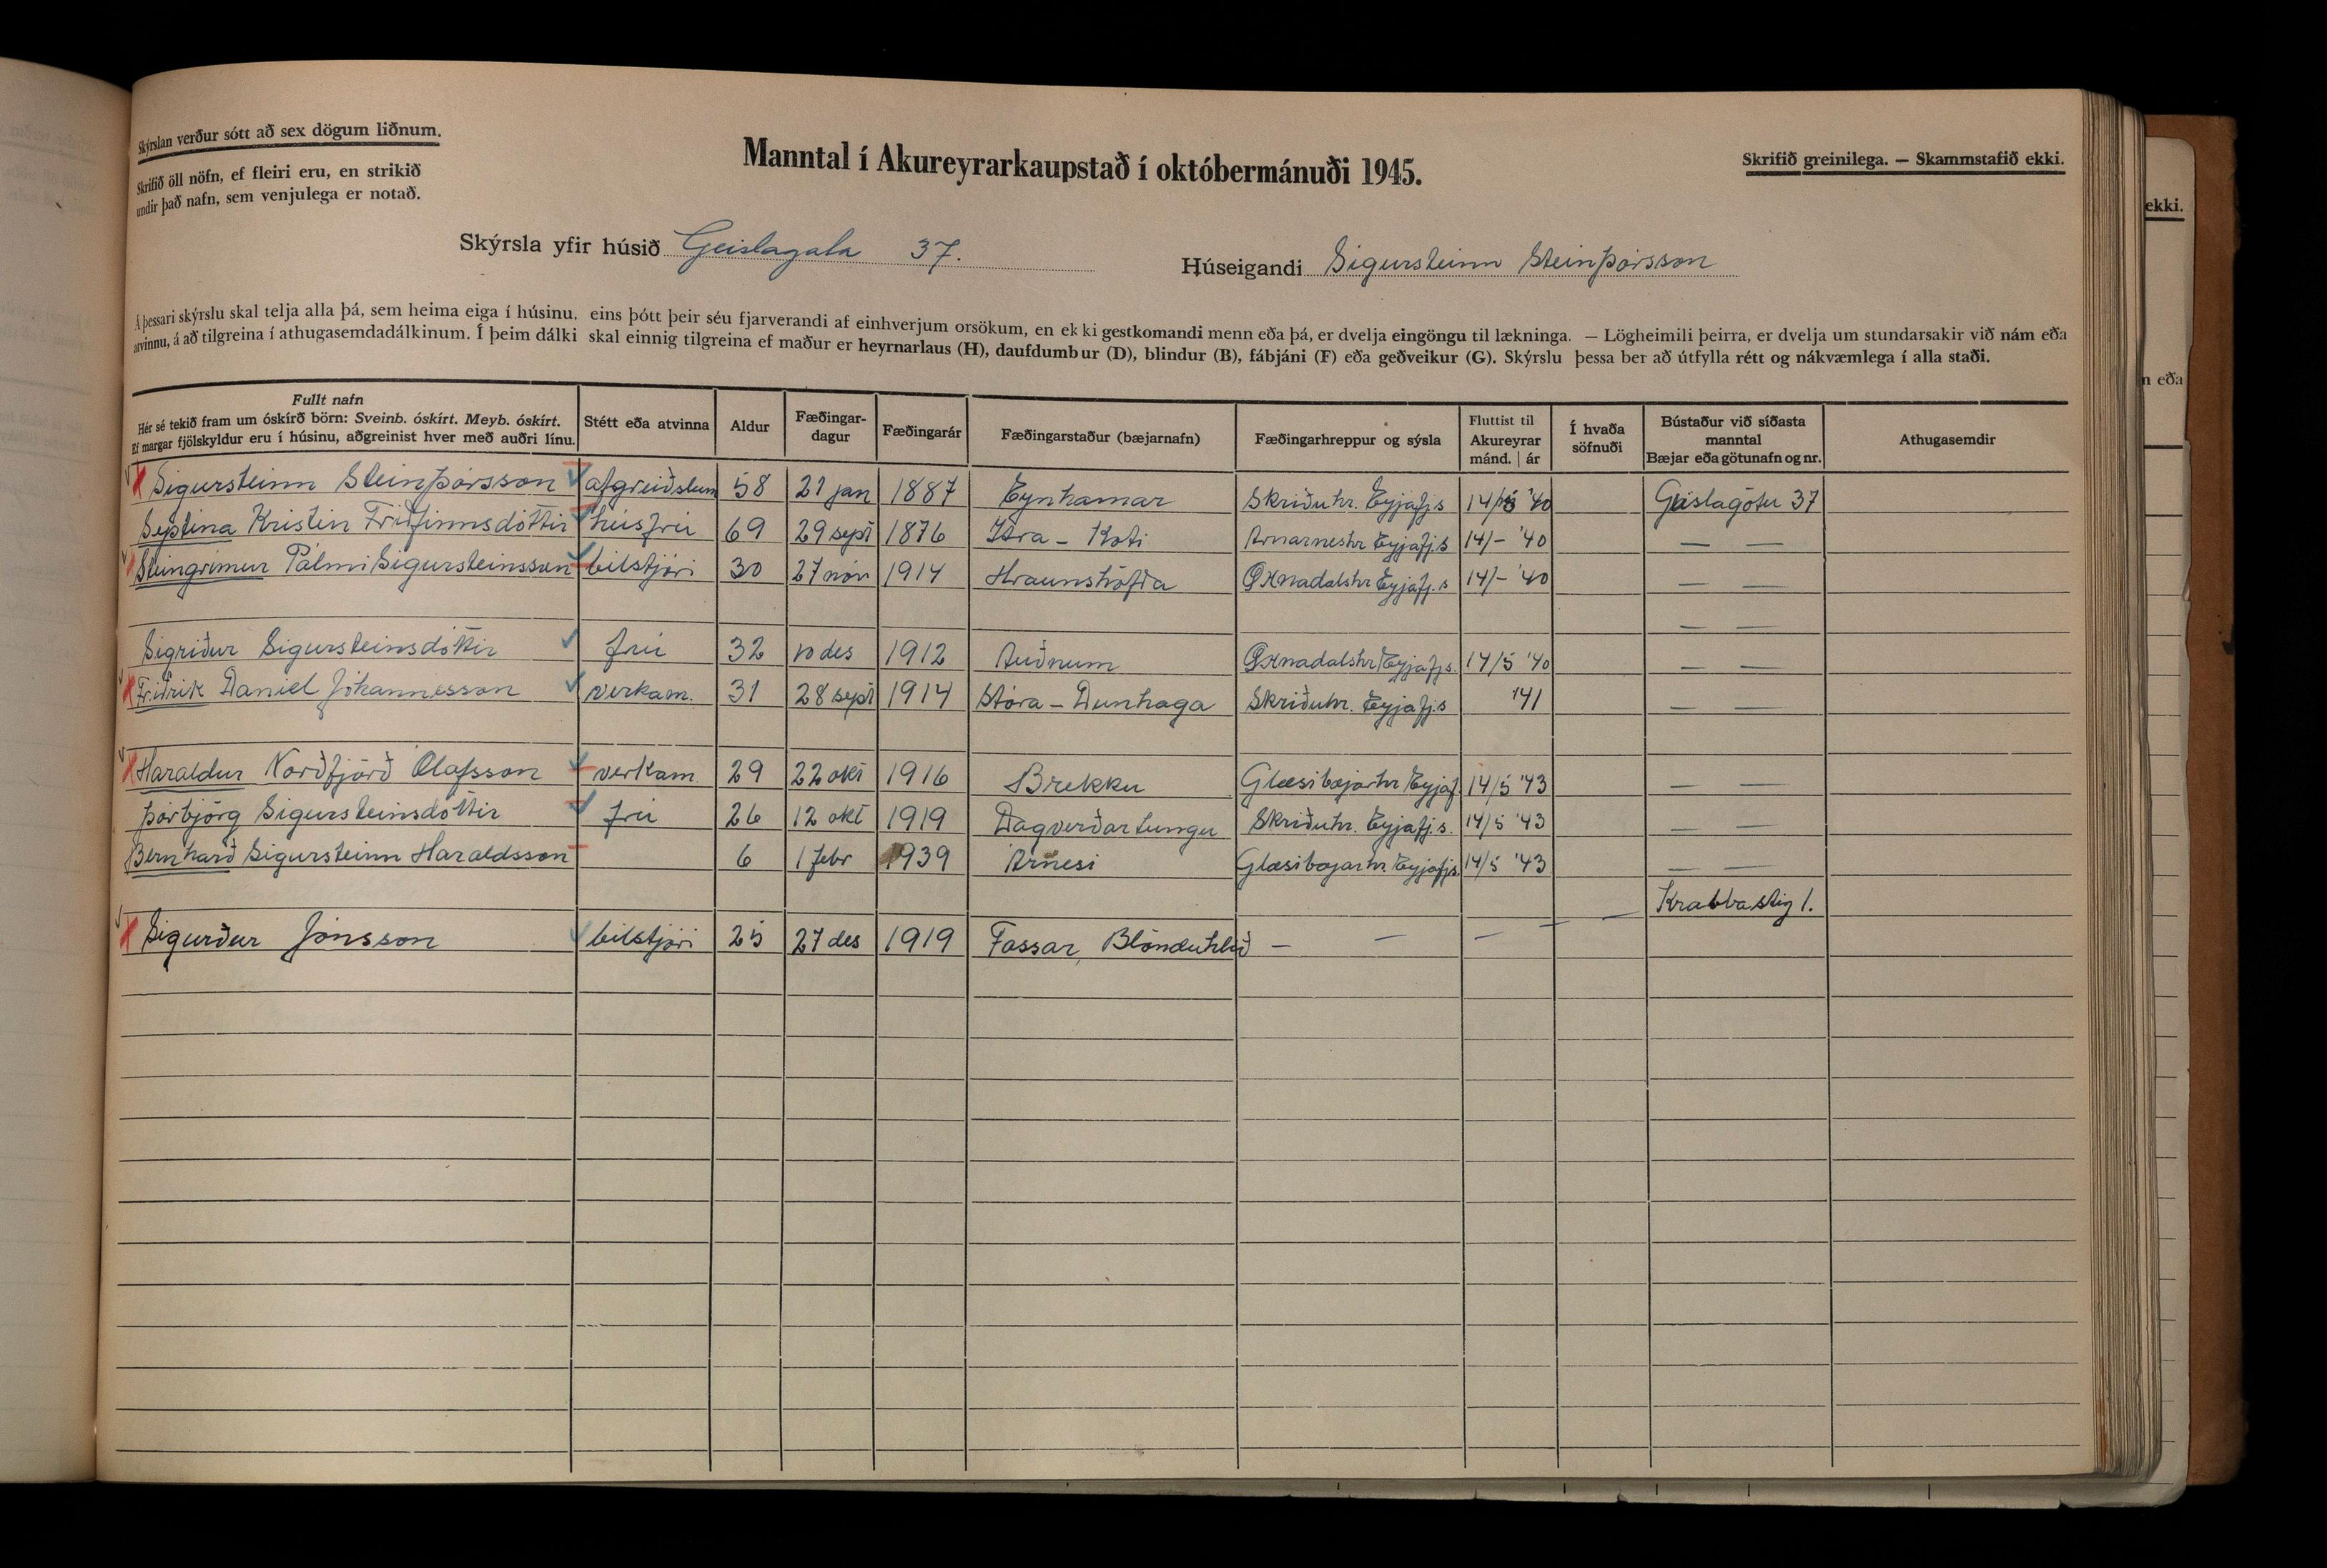 Skýrslan verður sótt að sex dögum liðnum.
Skrifið öll nöfn, ef fleiri eru, en strikið
undir það nafn, sem venjulega er notað.
Manntal í Akureyrarkaupstað í októbermánuði 1945.
Skrifið greinilega. — Skammstafið ekki.
ekki.
Skýrsla yfir húsið Geislagata 37.
Húseigandi Sigursteinn Steinþórsson
Á þessari skýrslu skal telja alla þá, sem heima eiga í húsinu, eins þótt þeir séu fjarverandi af einhverjum orsökum, en ekki gestkomandi menn eða þá, er dvelja eingöngu til lækninga. — Lögheimili þeirra, er dvelja um stundarsakir við nám eða
atvinnu, á að tilgreina í athugasemdadálkinum. Í þeim dálki skal einnig tilgreina ef maður er heyrnarlaus (H), daufdumbur (D), blindur (B), fábjáni (F) eða geðveikur (G). Skýrslu þessa ber að útfylla rétt og nákvæmlega í alla staði.
n eða
Fullt nafn
Hér sé tekið fram um óskírð börn: Sveinb. óskírt. Meyb. óskírt.
Ef margar fjölskyldur eru í húsinu, aðgreinist hver með auðri línu.
Stétt eða atvinna
Aldur
Fæðingar-
dagur
Fæðingarár
Fæðingarstaður (bæjarnafn)
Fæðingarhreppur og sýsla
Fluttist til
Akureyrar
mánd. | ár
Í hvaða
söfnuði
Bústaður við síðasta
manntal
Bæjar eða götunafn og nr.
Athugasemdir
Sigursteinn Steinþórsson afgreiðslum 58 21 jan 1887 Eynhamar Skriðuhr. Eyjafj.s 14/5 '40 Geislagötu 37
Septina Kristín Friðfinnsdóttir húsfrú 69 29 sept 1876 Ytra-Koti Arnarneshr Eyjafj.s 14/- '40 — —
Steingrímur Pálmi Sigursteinsson bílstjóri 30 27 nóv 1914 Hraunshöfða Öxnadalshr Eyjafj.s 14/- '40 — —
— —
Sigríður Sigursteinsdóttir frú 32 10 des 1912 Auðnum Öxnadalshr Eyjafj.s. 14/5 '40 — —
Friðrik Daníel Jóhannesson verkam. 31 28 sept 1914 Stóra-Dunhaga Skriðuhr. Eyjafj.s '41 — —
Haraldur Norðfjörð Ólafsson verkam. 29 22 okt 1916 Brekku Glæsibæjarhr Eyjaf. 14/5 '43 — —
Þórbjörg Sigursteinsdóttir frú 26 12 okt 1919 Dagverðartungu Skriðuhr. Eyjafj.s. 14/5 '43 — —
Bernharð Sigursteinn Haraldsson 6 1 febr 1939 Árnesi Glæsibæjarhr. Eyjafjs. 14/5 '43 — —
Krabbastíg 1.
Sigurður Jónsson bílstjóri 25 27 des 1919 Fossar, Blönduhlíð — — — — —